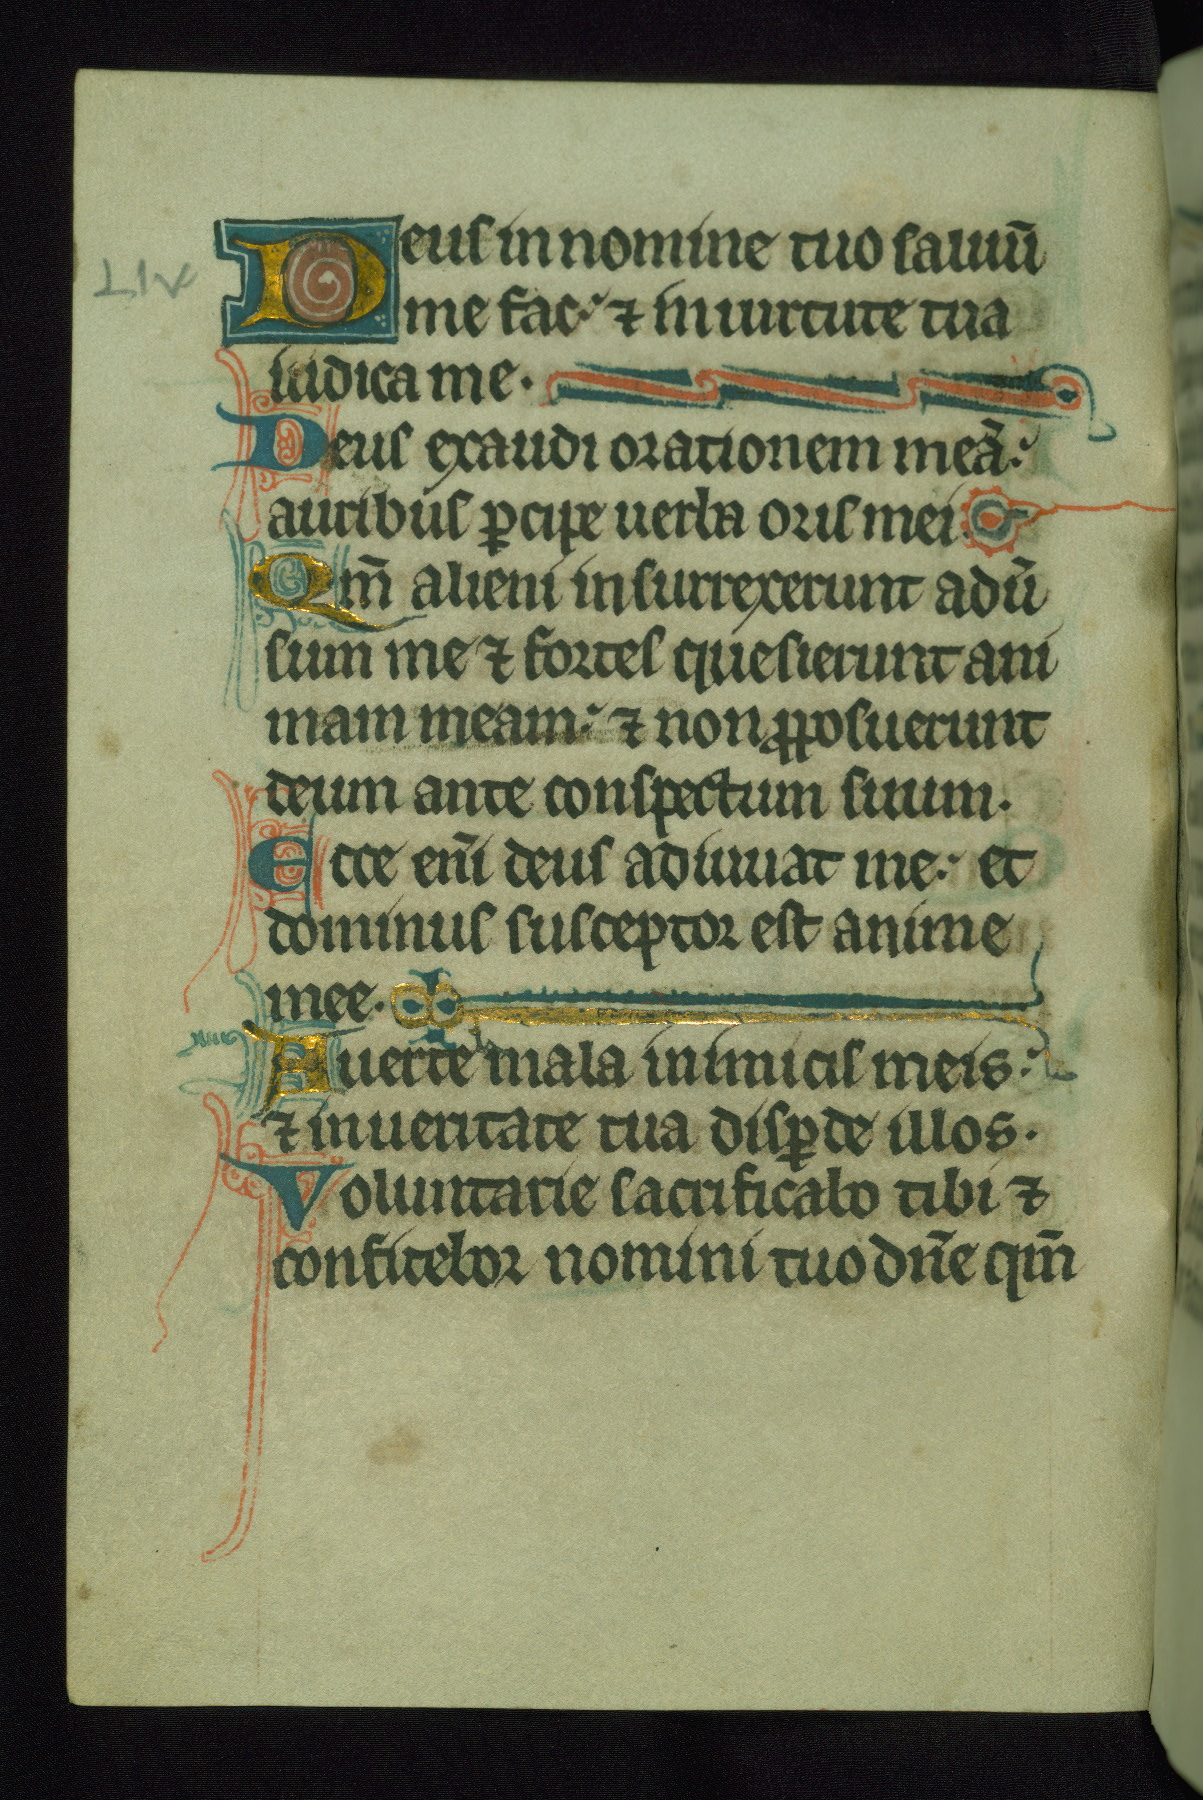 LIV
Deus in nomine tuo saluū
me fac: ⁊ in uirtute tua
iudica me.
Deus exaudi orationem meā:
auribus ꝑcipe uerba oris mei.
Qm̄ alieni insurrexerunt adū
sum me ⁊ fortes quesierunt ani
mam meam: ⁊ non ꝓposuerunt
deum ante conspectum suum.
Ecce eni̅ deus adiuuat me: et
dominus susceptor est anime
mee.
Auerte mala inimicis meis:
⁊ in ueritate tua disꝑde illos.
Voluntarie sacrificabo tibi ⁊
confitebor nomini tuo dn̄e qm̄